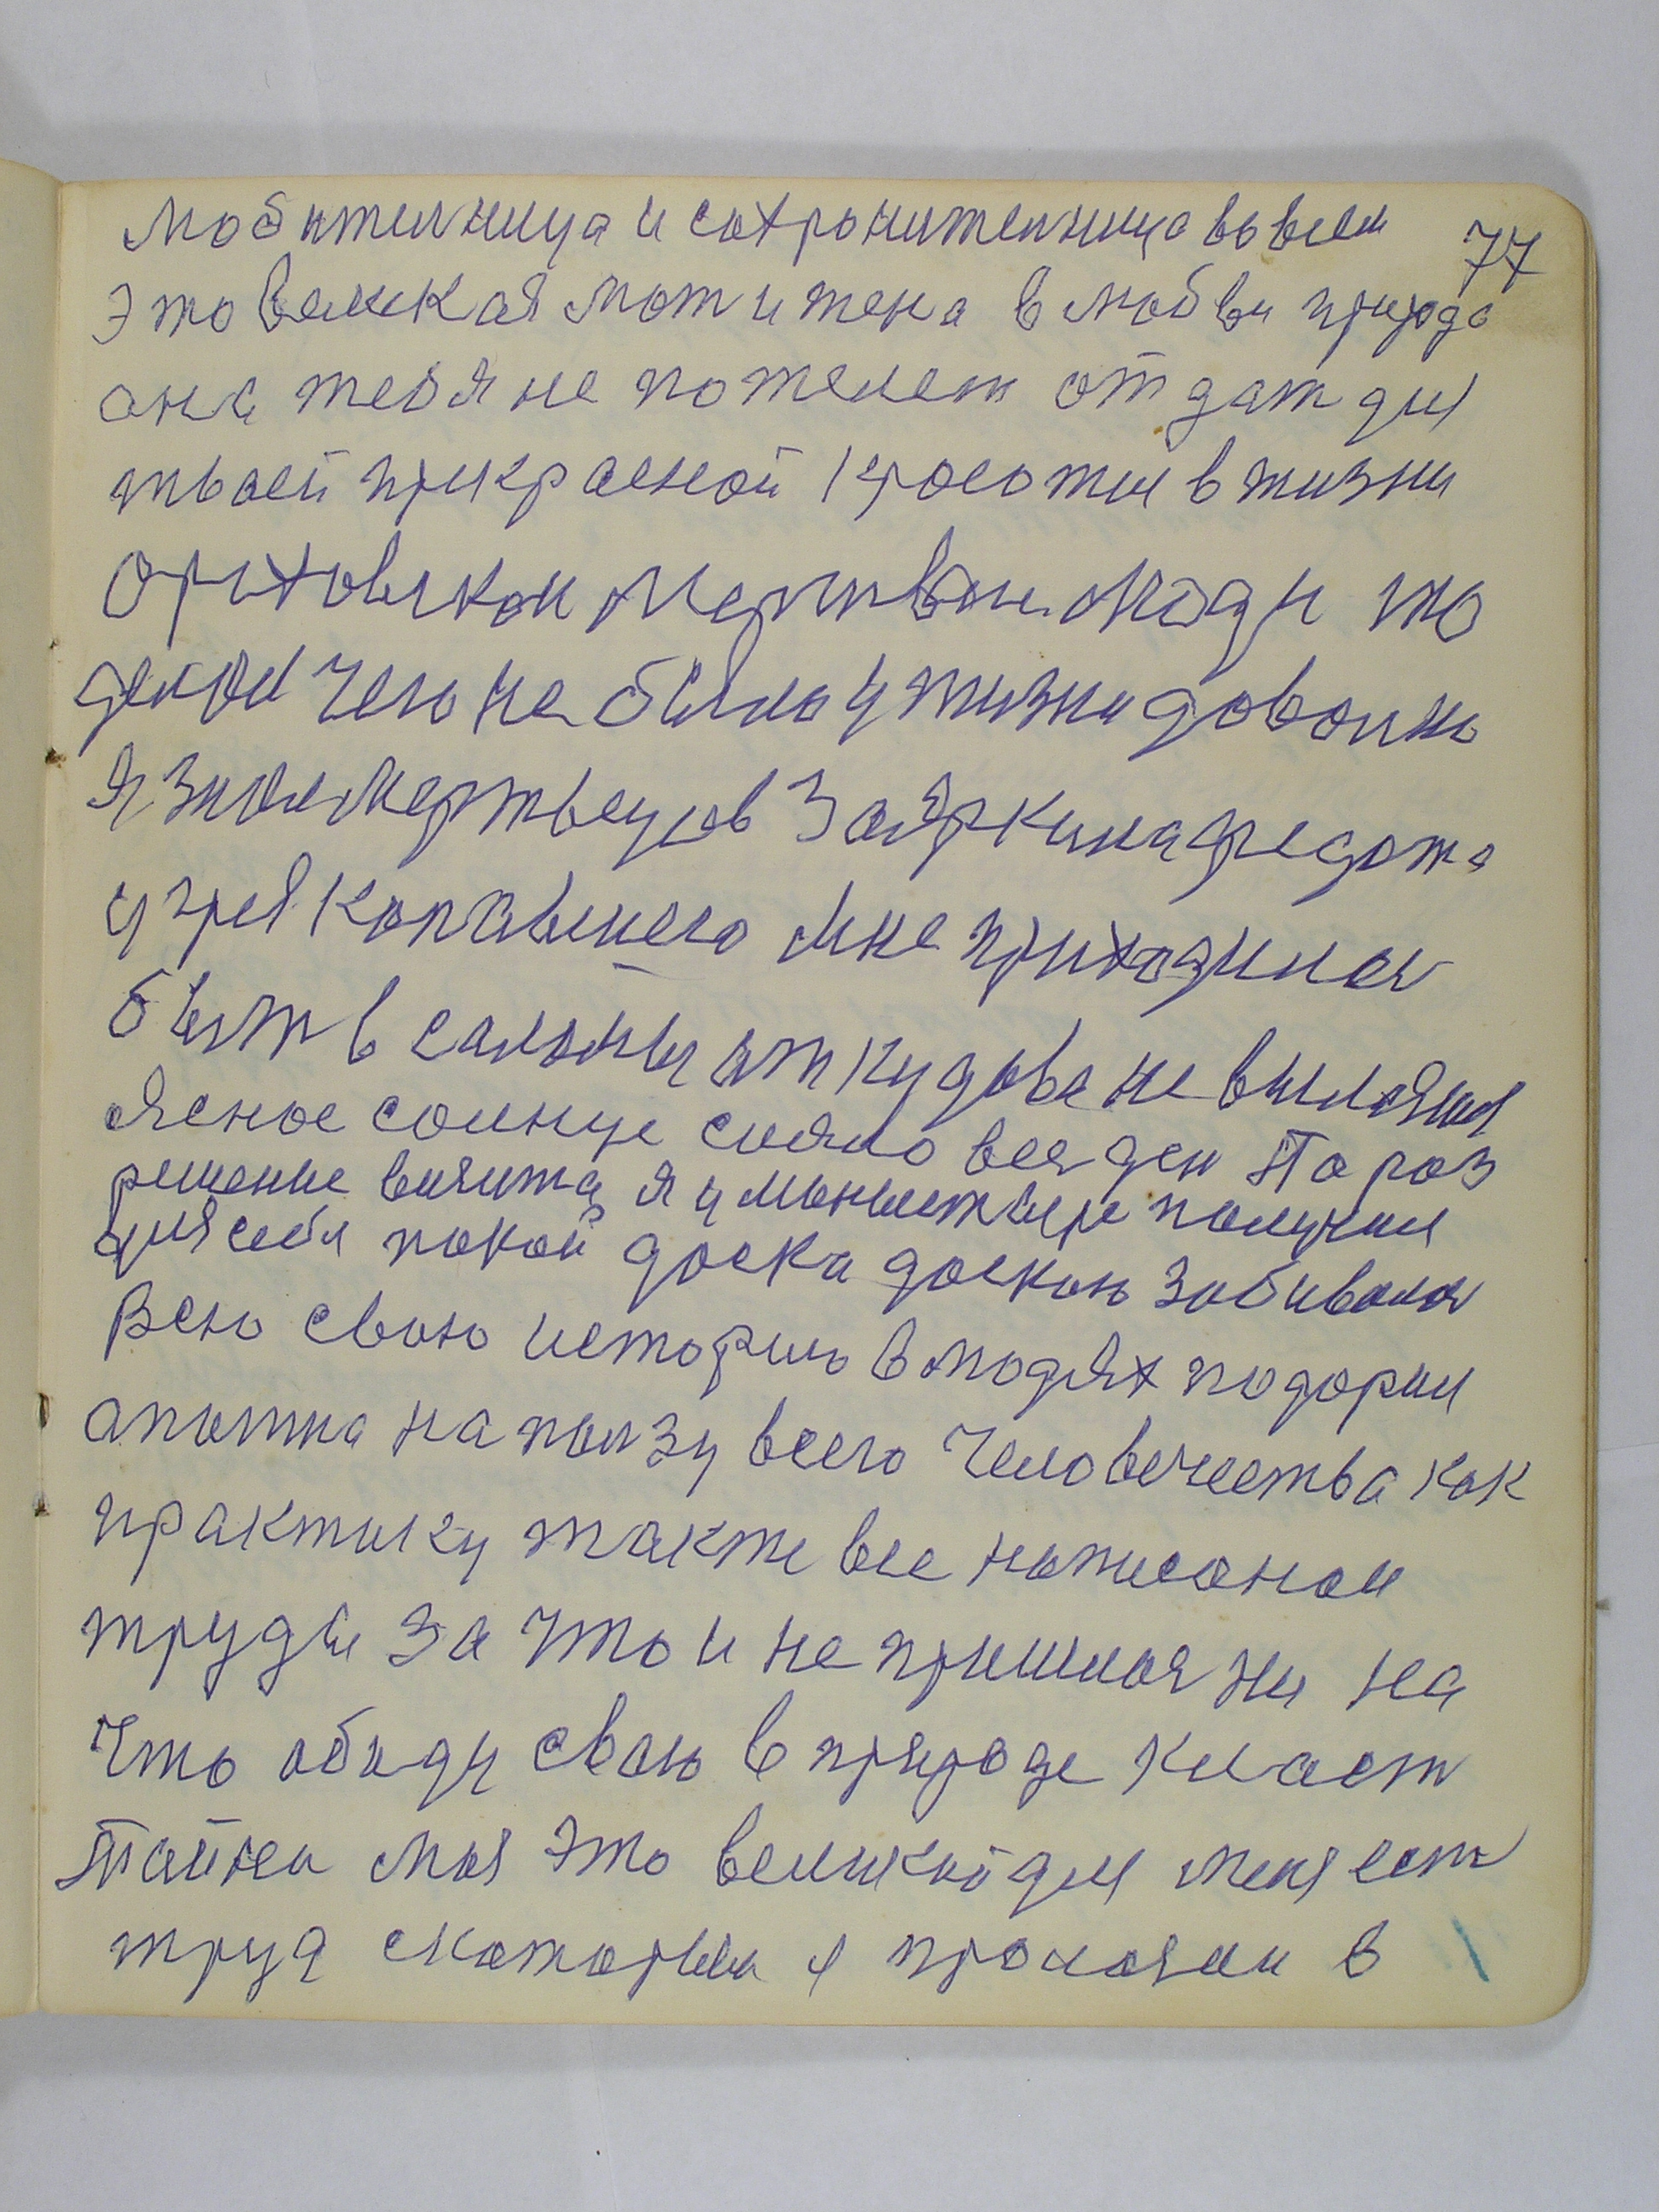 77
любителница и сохронителница во всем
это великая мат и жена в любви природа
она тебя не пожелает отдат для
твоей прикрасной кросоты в жизни
Ореховской мертвои люди то
делои чего не было у жизни доволно
я знол мертвецов Заяркина федота
у грея копавшего мне приходилос
быт в сал откудова не вылазил
ясное солнце сияло вес ден По раз
решение я у получил
для себя покой доска доскою забивалас
Всю свою историю в людях подорил
апотма на ползу всего человечества как
практику также все написаном
труды за что и не пришлос ни на
что обиду свою в природе класт
Тайна моя это великой для меня ест
труд скоторым я в